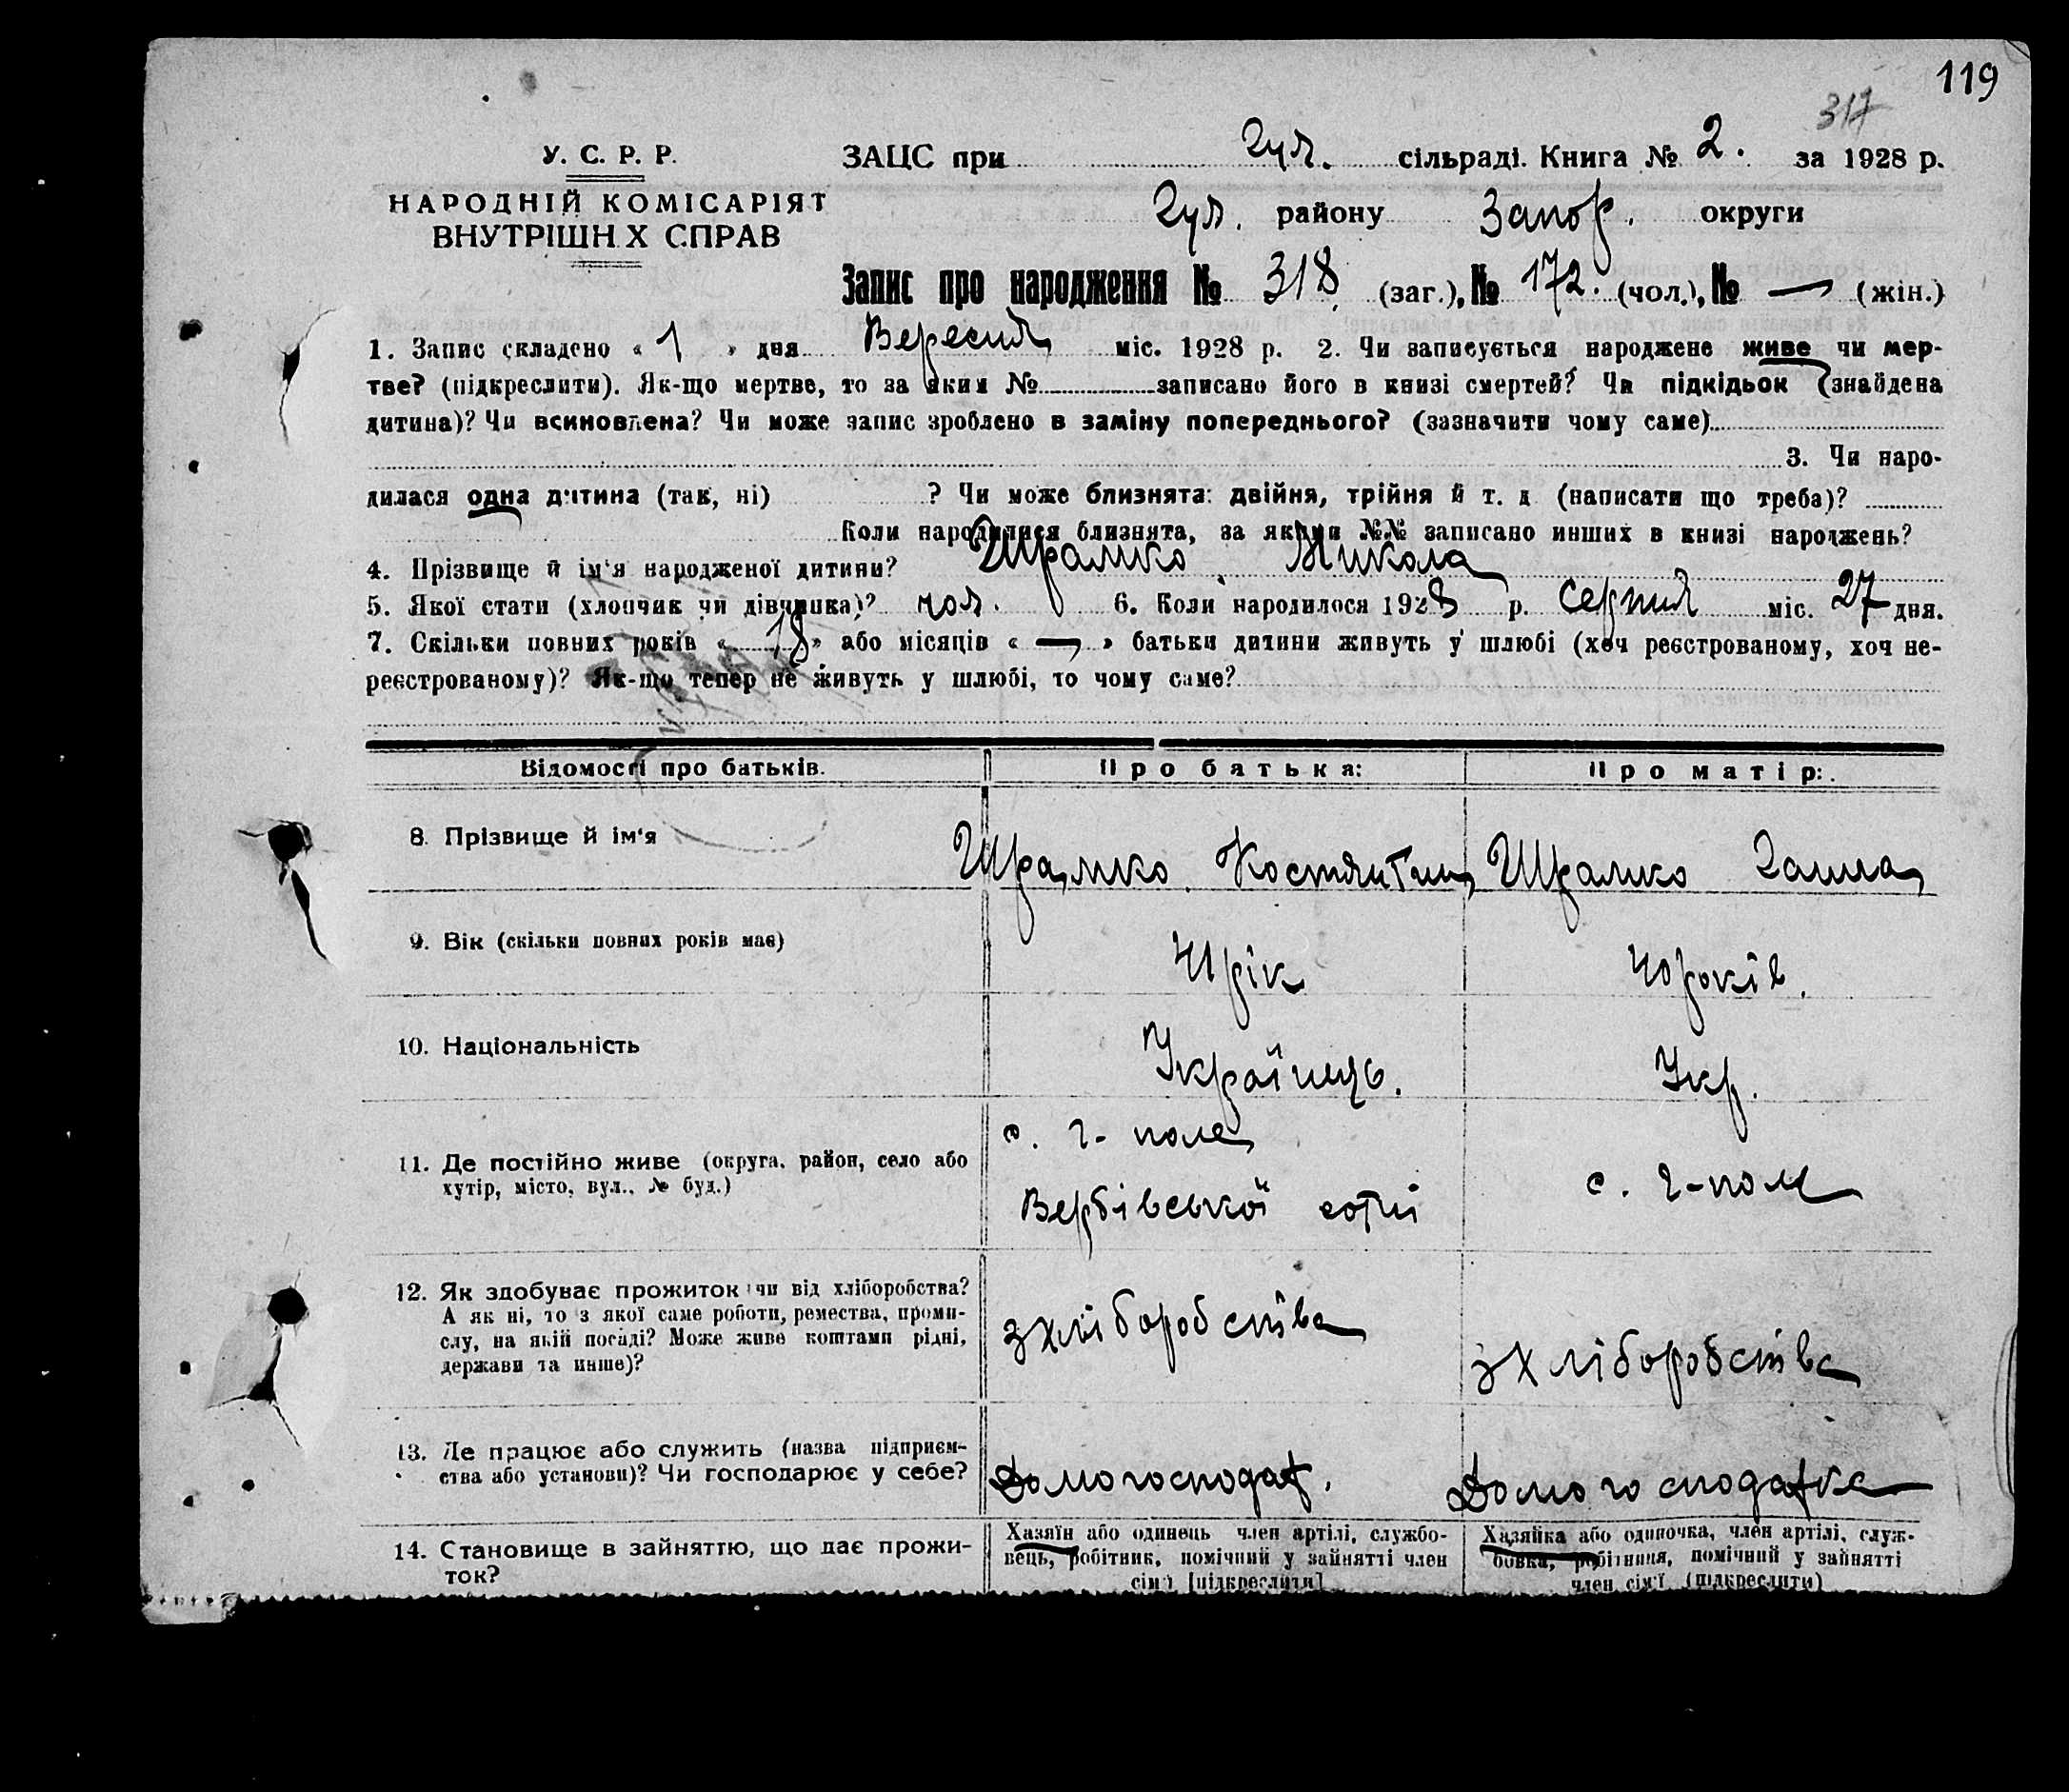 119
317
У. С. Р. Р.
НАРОДНІЙ КОМІСАРІЯТ
ВНУТРІШН Х СПРАВ
ЗАЦС при Гул. сільраді. Книга № 2. за 1928 р.
Гул. району Запор. округи
Запис про народження № 318 (заг.), № 172. (чол.), № — (жін.)
1. Запис складено « 1 » дня Вересня міс. 1928 р. 2. Чи записується народжене живе чи мер-
тве? (підкреслити). Як-що мертве, то за яким № записано його в книзі смертей? Чи підкідьок (знайдена
дитина)? Чи всиновлена? Чи може запис зроблено в заміну попереднього? (зазначити чому саме)
3. Чи наро-
дилася одна дитина (так, ні) ? Чи може близнята: двійня, трійня й т. д (написати що треба)?
Коли народилися близнята, за якими №№ записано инших в книзі народжень?
4. Прізвище й ім‘я народженої дитини? Шрамко Микола
5. Якої стати (хлопчик чи дівчинка)? чол. 6. Коли народилося 1928 р. Серпня міс. 27 дня.
7. Скільки повних років « 18 » або місяців « — » батьки дитини живуть у шлюбі (хоч реєстрованому, хоч не-
реєстрованому)? Як-що тепер не живуть у шлюбі, то чому саме?
Відомості про батьків. Про батька: Про матір:
8. Прізвище й ім‘я Шрамко Костянтин Шрамко Ганна
9. Вік (скільки повних років має) 41 рік 40 років.
10. Національність Українець. Укр.
11. Де постійно живе (округа, район, село або
хутір, місто, вул., № буд.)
с. Г-поле
Вербівської сотні
с. Г-поле
12. Як здобуває прожиток чи від хліборобства?
А як ні, то з якої саме роботи, ремества, проми-
слу, на якій посаді? Може живе коштами рідні,
держави та инше)?
з хліборобства
з хліборобства
13. Де працює або служить (назва підприєм-
ства або установи)? Чи господарює у себе?
Домогосподар.
Домогосподарка
14. Становище в зайняттю, що дає прожи-
ток?
Хазяїн або одинець член артілі, службо-
вець, робітник, помічний у зайнятті член
сім‘ї [підкреслити]
Хазяйка або одиночка, член артілі, служ-
бовка, робітниця, помічний у зайнятті
член сім‘ї (підкреслити)